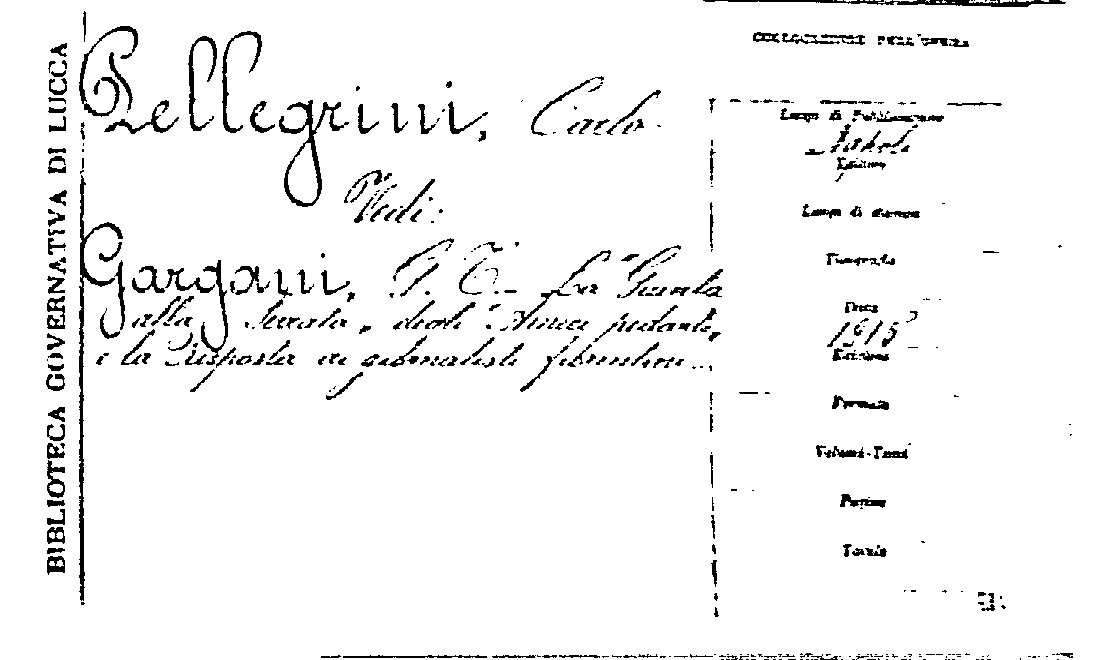 BIBLIOTECA GOVERNATIVA DI LUCCA
Pellegrini, Carlo.
Vedi:
Gargani, G. T. - La "Giunta
alla Serrata" degli "Amici pedanti"
e la Risposta ai giornalisti fiorentini...
DELL'OPERA
Luogo di Pubblicazione
Napoli
Editore
Luogo di stampa
Tipografia
Data
1915
Edizione
Formato
Volumi-Tomi
Pagine
Tavole